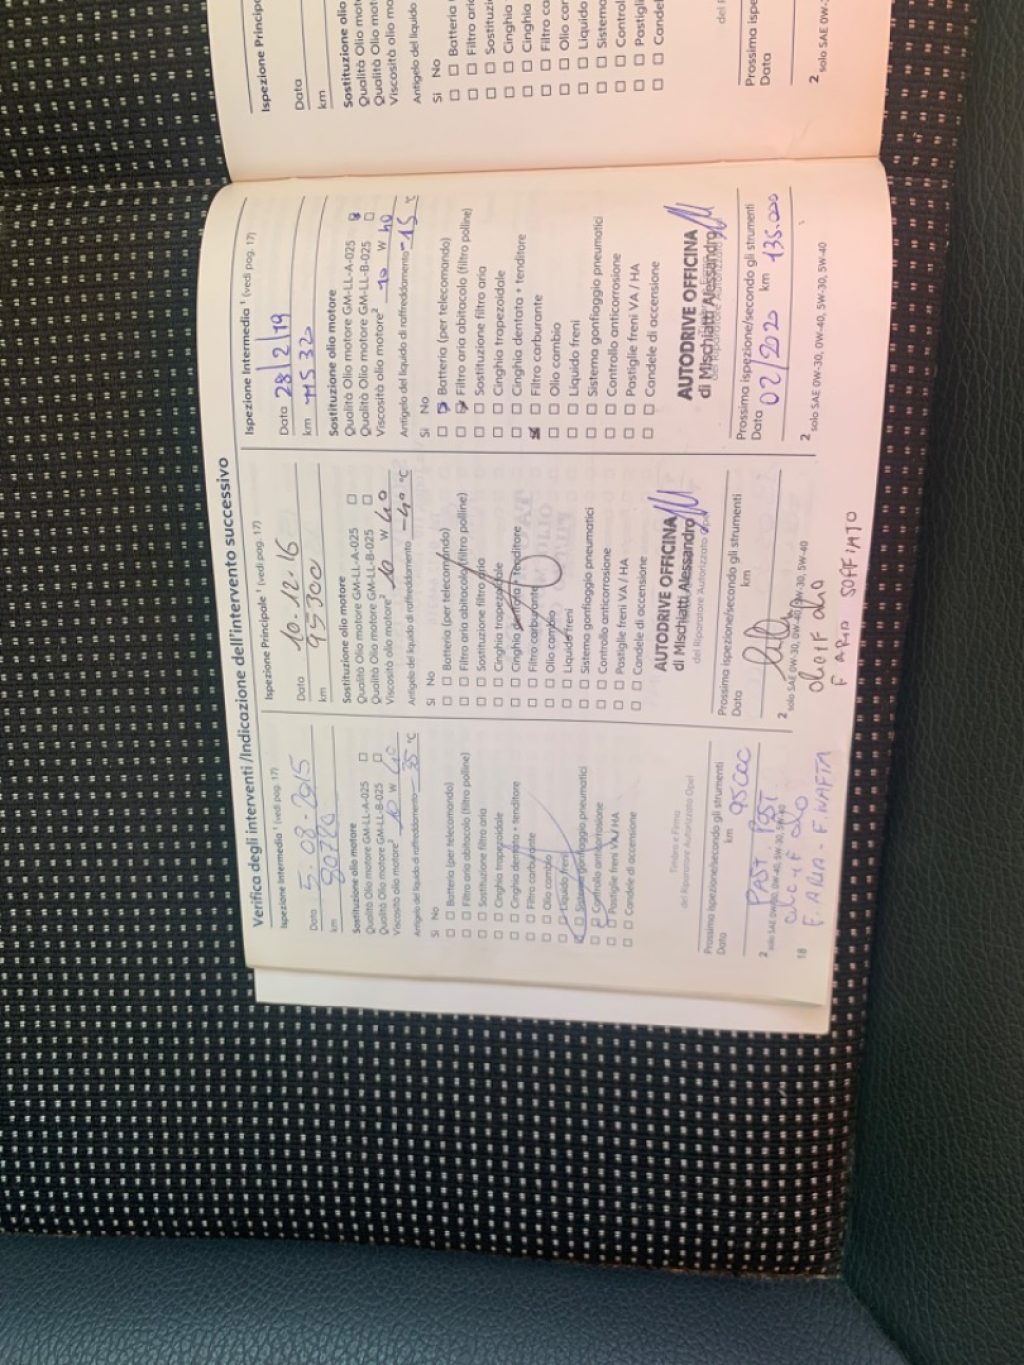 Verifica degli interventi /Indicazione dell'intervento successivo
Ispezione Intermedia ¹ (vedi pag. 17)
Data 5.08-2015
km 80720
Sostituzione olio motore
Qualità Olio motore GM-LL-A-025 □
Qualità Olio motore GM-LL-B-025 □
Viscosità olio motore² 10 W 40
Antigelo del liquido di raffreddamento -35 °C
Si No
□ □ Batteria (per telecomando)
□ □ Filtro aria abitacolo (filtro polline)
□ □ Sostituzione filtro aria
□ □ Cinghia trapezoidale
□ □ Cinghia dentata + tenditore
□ □ Filtro carburante
□ □ Olio cambio
□ □ Liquido freni
□ □ Sistema gonfiaggio pneumatici
□ □ Controllo anticorrosione
□ □ Pastiglie freni VA / HA
□ □ Candele di accensione
Timbro e Firma
del Riparatore Autorizzato Opel
Prossima ispezione/secondo gli strumenti
Data km 95000
PAST. POST.
2 solo SAE 0W-30, 0W-40, 5W-30, 5W-40
F. ARIA - F. NAFTA
18
Ispezione Principale ¹ (vedi pag. 17)
Data 10.12.16
km 95300
Sostituzione olio motore
Qualità Olio motore GM-LL-A-025 □
Qualità Olio motore GM-LL-B-025 □
Viscosità olio motore² 10 W 40
Antigelo del liquido di raffreddamento -40 °C
Si No
□ □ Batteria (per telecomando)
□ □ Filtro aria abitacolo (filtro polline)
□ □ Sostituzione filtro aria
□ □ Cinghia trapezoidale
□ □ Cinghia dentata + tenditore
□ □ Filtro carburante
□ □ Olio cambio
□ □ Liquido freni
□ □ Sistema gonfiaggio pneumatici
□ □ Controllo anticorrosione
□ □ Pastiglie freni VA / HA
□ □ Candele di accensione
AUTODRIVE OFFICINA
di Mischiatti Alessandro
del Riparatore Autorizzato Opel
Prossima ispezione/secondo gli strumenti
Data km
2 solo SAE 0W-30, 0W-40, 5W-30, 5W-40
F ARIA SOFFIATO
Ispezione Intermedia ¹ (vedi pag. 17)
Data 28/2/19
km
Sostituzione olio motore
Qualità Olio motore GM-LL-A-025
Qualità Olio motore GM-LL-B-025 □
Viscosità olio motore² 10 W 40
Antigelo del liquido di raffreddamento -15 °C
Si No
Batteria (per telecomando)
Filtro aria abitacolo (filtro polline)
□ □ Sostituzione filtro aria
□ □ Cinghia trapezoidale
□ □ Cinghia dentata + tenditore
Filtro carburante
□ □ Olio cambio
□ □ Liquido freni
□ □ Sistema gonfiaggio pneumatici
□ □ Controllo anticorrosione
□ □ Pastiglie freni VA / HA
□ □ Candele di accensione
AUTODRIVE OFFICINA
di Mischiatti Alessandro
del Riparatore Autorizzato
Prossima ispezione/secondo gli strumenti
Data 02/2020 km 135.000
2 solo SAE 0W-30, 0W-40, 5W-30, 5W-40
Ispezione
Data
km
Sostituzione olio
Qualità Olio
Qualità Olio
Viscosità olio
Antigelo del liquido
Si No
□ □ Batteria
□ □ Filtro
□ □
□ □ Cinghia
□ □ Cinghia
□ □ Filtro
□ □ Olio
□ □ Liquido
□ □
□ □
□ □
□ □
del
Prossima
Data
2 solo SAE 0W-30,